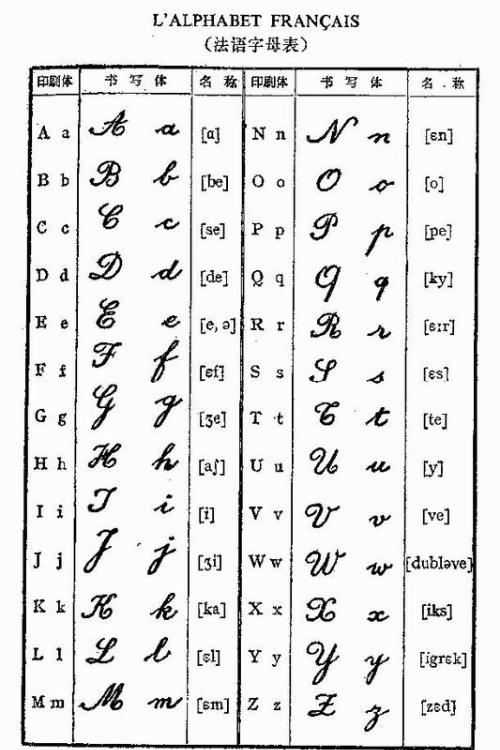 L'ALPHABET FRANÇAIS
（法语字母表）
印刷体 书写体 名称 印刷体 书写体 名称
A a A a [ɑ] N n N n [ɛn]
B b B b [be] O o O o [o]
C c C c [se] P p P p [pe]
D d D d [de] Q q Q q [ky]
E e E e [e, ə] R r R r [ɛːr]
F f F f [ɛf] S s S s [ɛs]
G g G g [ʒe] T t T t [te]
H h H h [aʃ] U u U u [y]
I i I i [i] V v V v [ve]
J j J j [ʒi] W w W w [dubləve]
K k K k [ka] X x X x [iks]
L l L l [ɛl] Y y Y y [igrɛk]
M m M m [ɛm] Z z Z z [zɛd]